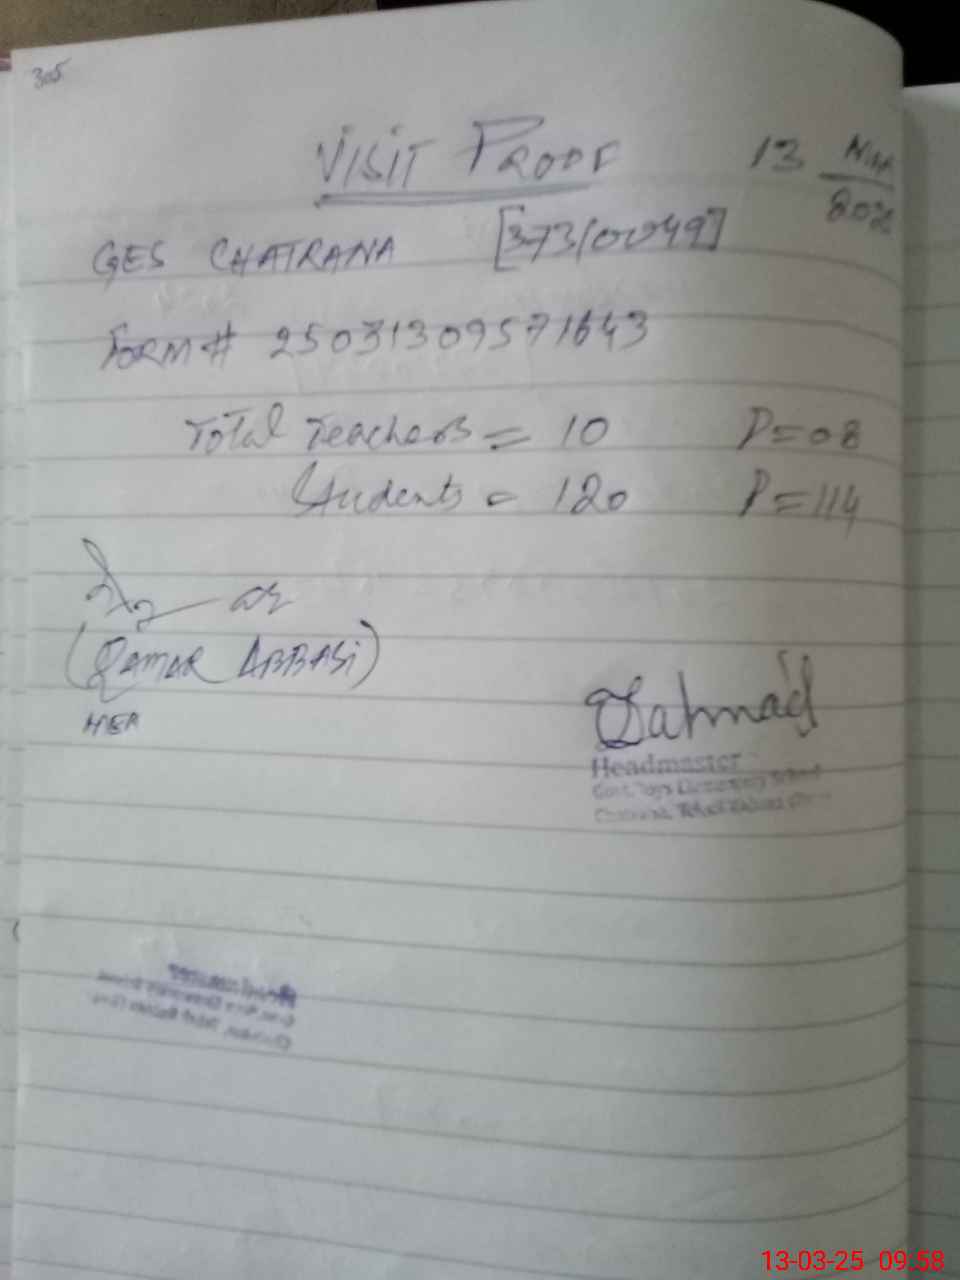 305
VISIT PROOF
13
GES CHATRANA [37310049]
Form # 25031309571643
Total Teachers = 10 P=08
Students = 120 P=114
(Qamar ABBASi)
MEA
Headmaster
Govt. Boys Elementary School
13-03-25 09:58